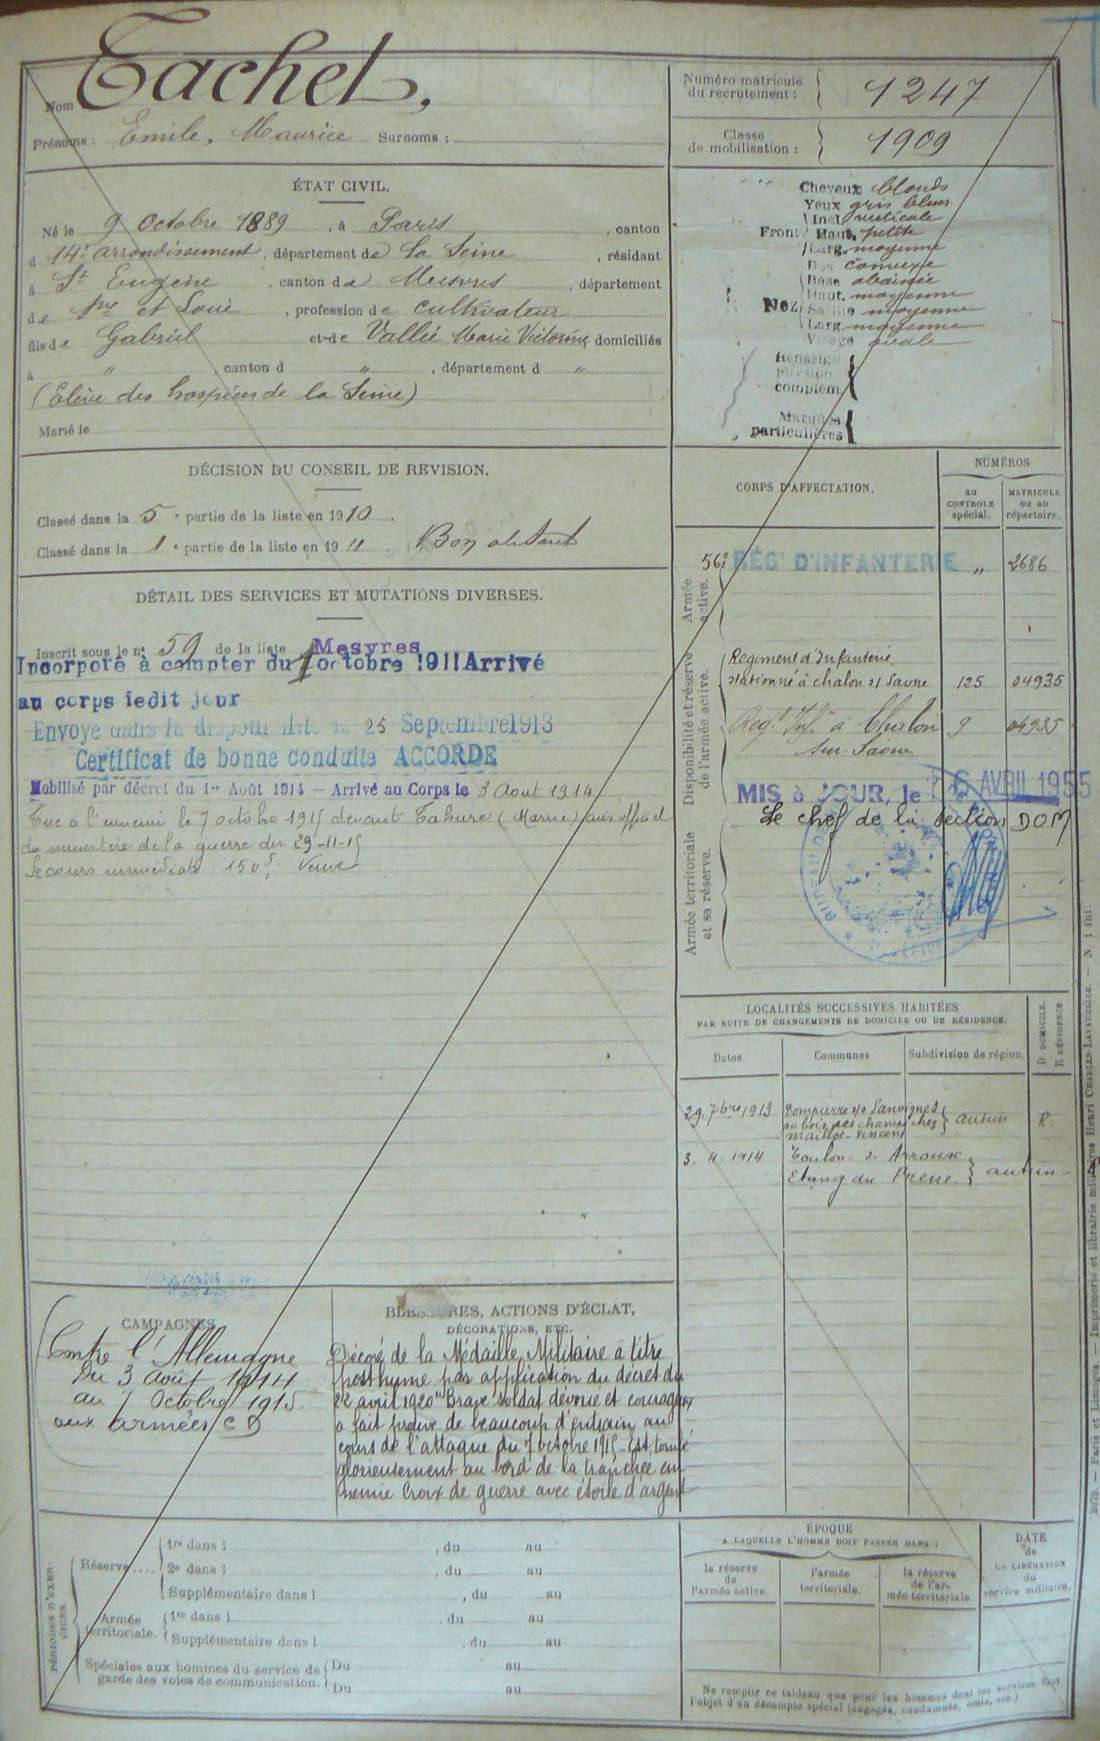 Nom Tachet,
Prénoms : Emile, Maurice Surnoms :
Numéro matricule
du recrutement : } 1247
Classe
de mobilisation : } 1909
ÉTAT CIVIL.
Né le 9 Octobre 1889, à Paris, canton
d 14e arrondissement, département de la Seine, résidant
à St Eugène, canton de Mesvres, département
de Sne et Loire, profession de cultivateur
fils de Gabriel et de Vallée Marie Victorine, domiciliés
à " canton d " , département d "
(Elève des hospices de la Seine)
Marié le
Cheveux blonds
Yeux gris bleus
Front { Incl. verticale
Haut. petite
Larg. moyenne
Nez { Dos convexe
Base abaissée
Haut. moyenne
Saillie moyenne
Larg. moyenne
Visage ovale
Renseign
physion.
complém {
Marques
particulières {
DÉCISION DU CONSEIL DE REVISION.
Classé dans la 5e partie de la liste en 1910.
Classé dans la 1e partie de la liste en 1911. Bon absent
DÉTAIL DES SERVICES ET MUTATIONS DIVERSES.
Inscrit sous le no 59 de la liste Mesvres
Incorporé à compter du 1 octobre 1911 Arrivé
au corps ledit jour
Envoyé dans la disponibilité le 25 Septembre 1913
Certificat de bonne conduite ACCORDÉ
Mobilisé par décret du 1er Août 1914 — Arrivé au Corps le 3 Août 1914
Tué à l'ennemi le 7 octobre 1915 devant Tahure (Marne) avis officiel
du ministère de la guerre du 29-11-15
Secours immédiat 150f Veuve
CORPS D'AFFECTATION.
NUMÉROS
au
CONTROLE
spécial.
MATRICULE
ou au
répertoire.
Armée
active.
56e RÉGt D'INFANTERIE " 2686
Disponibilité et réserve
de l'armée active.
Régiment d'Infanterie
stationné à Chalon s/ Saone 125 04935
Regt Infie à Chalon 9 04935
sur Saone
MIS à JOUR, le 6 AVRIL 1955
Le chef de la section DOM
Armée territoriale
et sa réserve.
LOCALITÉS SUCCESSIVES HABITÉES
PAR SUITE DE CHANGEMENTS DE DOMICILE OU DE RÉSIDENCE.
Dates. Communes Subdivision de région.
D DOMICILE.
R RÉSIDENCE.
29 7bre 1913 Dompierre s/s Sanvignes
au bois des champs chez } autun R.
Maillot Vincent
3. 4. 1914 Toulon s. Arroux
Etang du Frene } autun -
CAMPAGNES.
Contre l'Allemagne
Du 3 août 1914
au 7 Octobre 1915
aux armées C D
BLESSURES, ACTIONS D'ÉCLAT,
DÉCORATIONS, ETC.
Décoré de la Médaille Militaire à titre
posthume par application du décret du
22 avril 1920 "Brave soldat dévoué et courageux
a fait preuve de beaucoup d'entrain au
cours de l'attaque du 7 octobre 1915 - Est tombé
glorieusement au bord de la tranchée en-
nemie Croix de guerre avec étoile d'argent
PÉRIODES D'EXER-
CICES.
Réserve..... { 1re dans l , du au
2e dans l , du au
Supplémentaire dans l , du au
Armée
territoriale. { 1re dans l , du au
Supplémentaire dans l , du au
Spéciales aux hommes du service de
garde des voies de communication. { Du au
Du au
ÉPOQUE
A LAQUELLE L'HOMME DOIT PASSER DANS :
la réserve
de
l'armée active.
l'armée
territoriale.
la réserve
de l'ar-
mée territoriale
DATE
de
LA LIBÉRATION
du
service militaire.
Ne remplir ce tableau que pour les hommes dont les services font
l'objet d'un décompte spécial (engagés, condamnés, omis, etc.)
Paris et Limoges. — Imprimerie et librairie militaires Henri CHARLES-LAVAUZELLE. — N. 1 int.